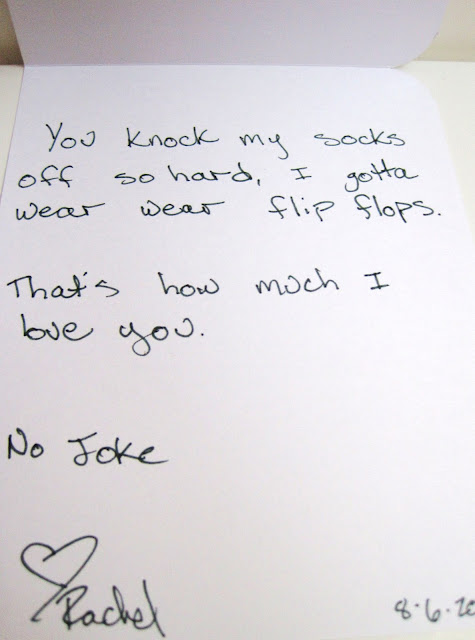 You knock my socks
off so hard, I gotta
wear wear flip flops.
That's how much I
love you.
No Joke
Rachel
8.6.20